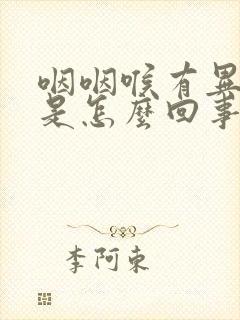 咽咽喉有異
是怎麼回事
李阿東